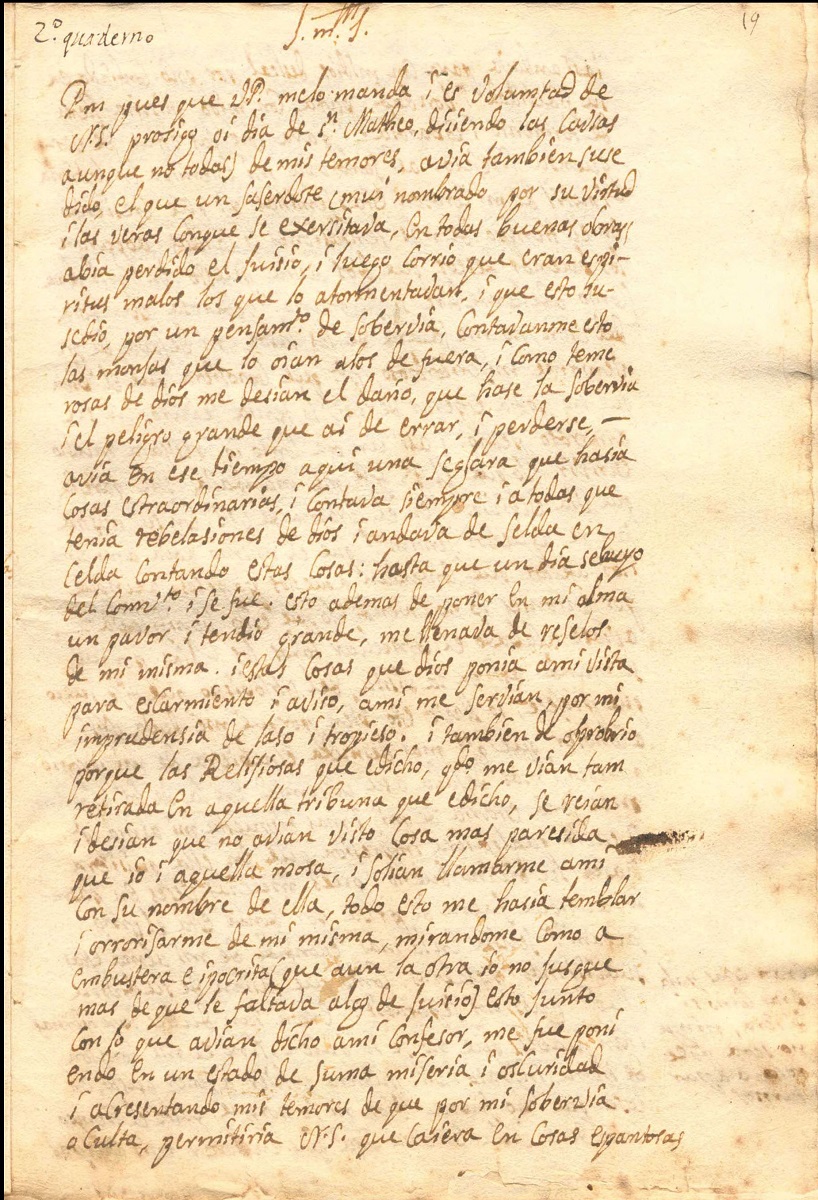 2.º quaderno
J. m.ª J.
19
Pm pues que VP. melo manda i es Voluntad de
N.S. prosigo oi dia de S.n Matheo, disiendo las Causas
aunque no todas) de mis temores, avia tambien suse
dido, el que un saserdote (mui nombrado por su virtud
i las veras Conque se exersitava, En todas buenas obras,
abia perdido el Juisio, i luego Corrio que eran espi-
ritus malos los que lo atormentavan, i que esto su-
sedio, por un pensam.to de sobervia, Contavanme esto
las monjas que lo oian alos de fuera, i Como teme
rosas de dios me desian el daño, que hase la sobervia
i el peligro grande que ai de errar, i perderse, —
avia En ese tiempo aqui una seglara que hasia
Cosas estraordinarias, i Contava siempre i a todas que
tenia rebelasiones de dios i andava de selda en
Celda Contando estas Cosas: hasta que un dia se huyo
del Conv.to i se fue. esto ademas de poner En mi alma
un pavor i tendio grande, me llenava de reselos
de mi misma. i estas Cosas que dios ponia a mi vista
para escarmiento i aviso, ami me servian, por mi
imprudensia de laso i tropieso. i tambien de oprobrio
porque las Relijiosas que e dicho, q.do me vian tam
retirada En aquella tribuna que e dicho, se reian
i desian que no avian visto Cosa mas paresida
que io i aquella mosa, i solian llamarme ami
Con su nombre de ella, todo esto me hasia temblar
i orrorisarme de mi misma, mirandome Como a
Embustera e ipocrita (que aun la otra io no jusgue
mas de que le faltava algo de juisio) esto junto
Con lo que avian dicho ami Confesor, me fue poni
endo En un estado de suma miseria i oscuridad
i aCresentando mis temores de que por mi sobervia
oCulta, permitiria N.S. que Caiera En Cosas espantosas